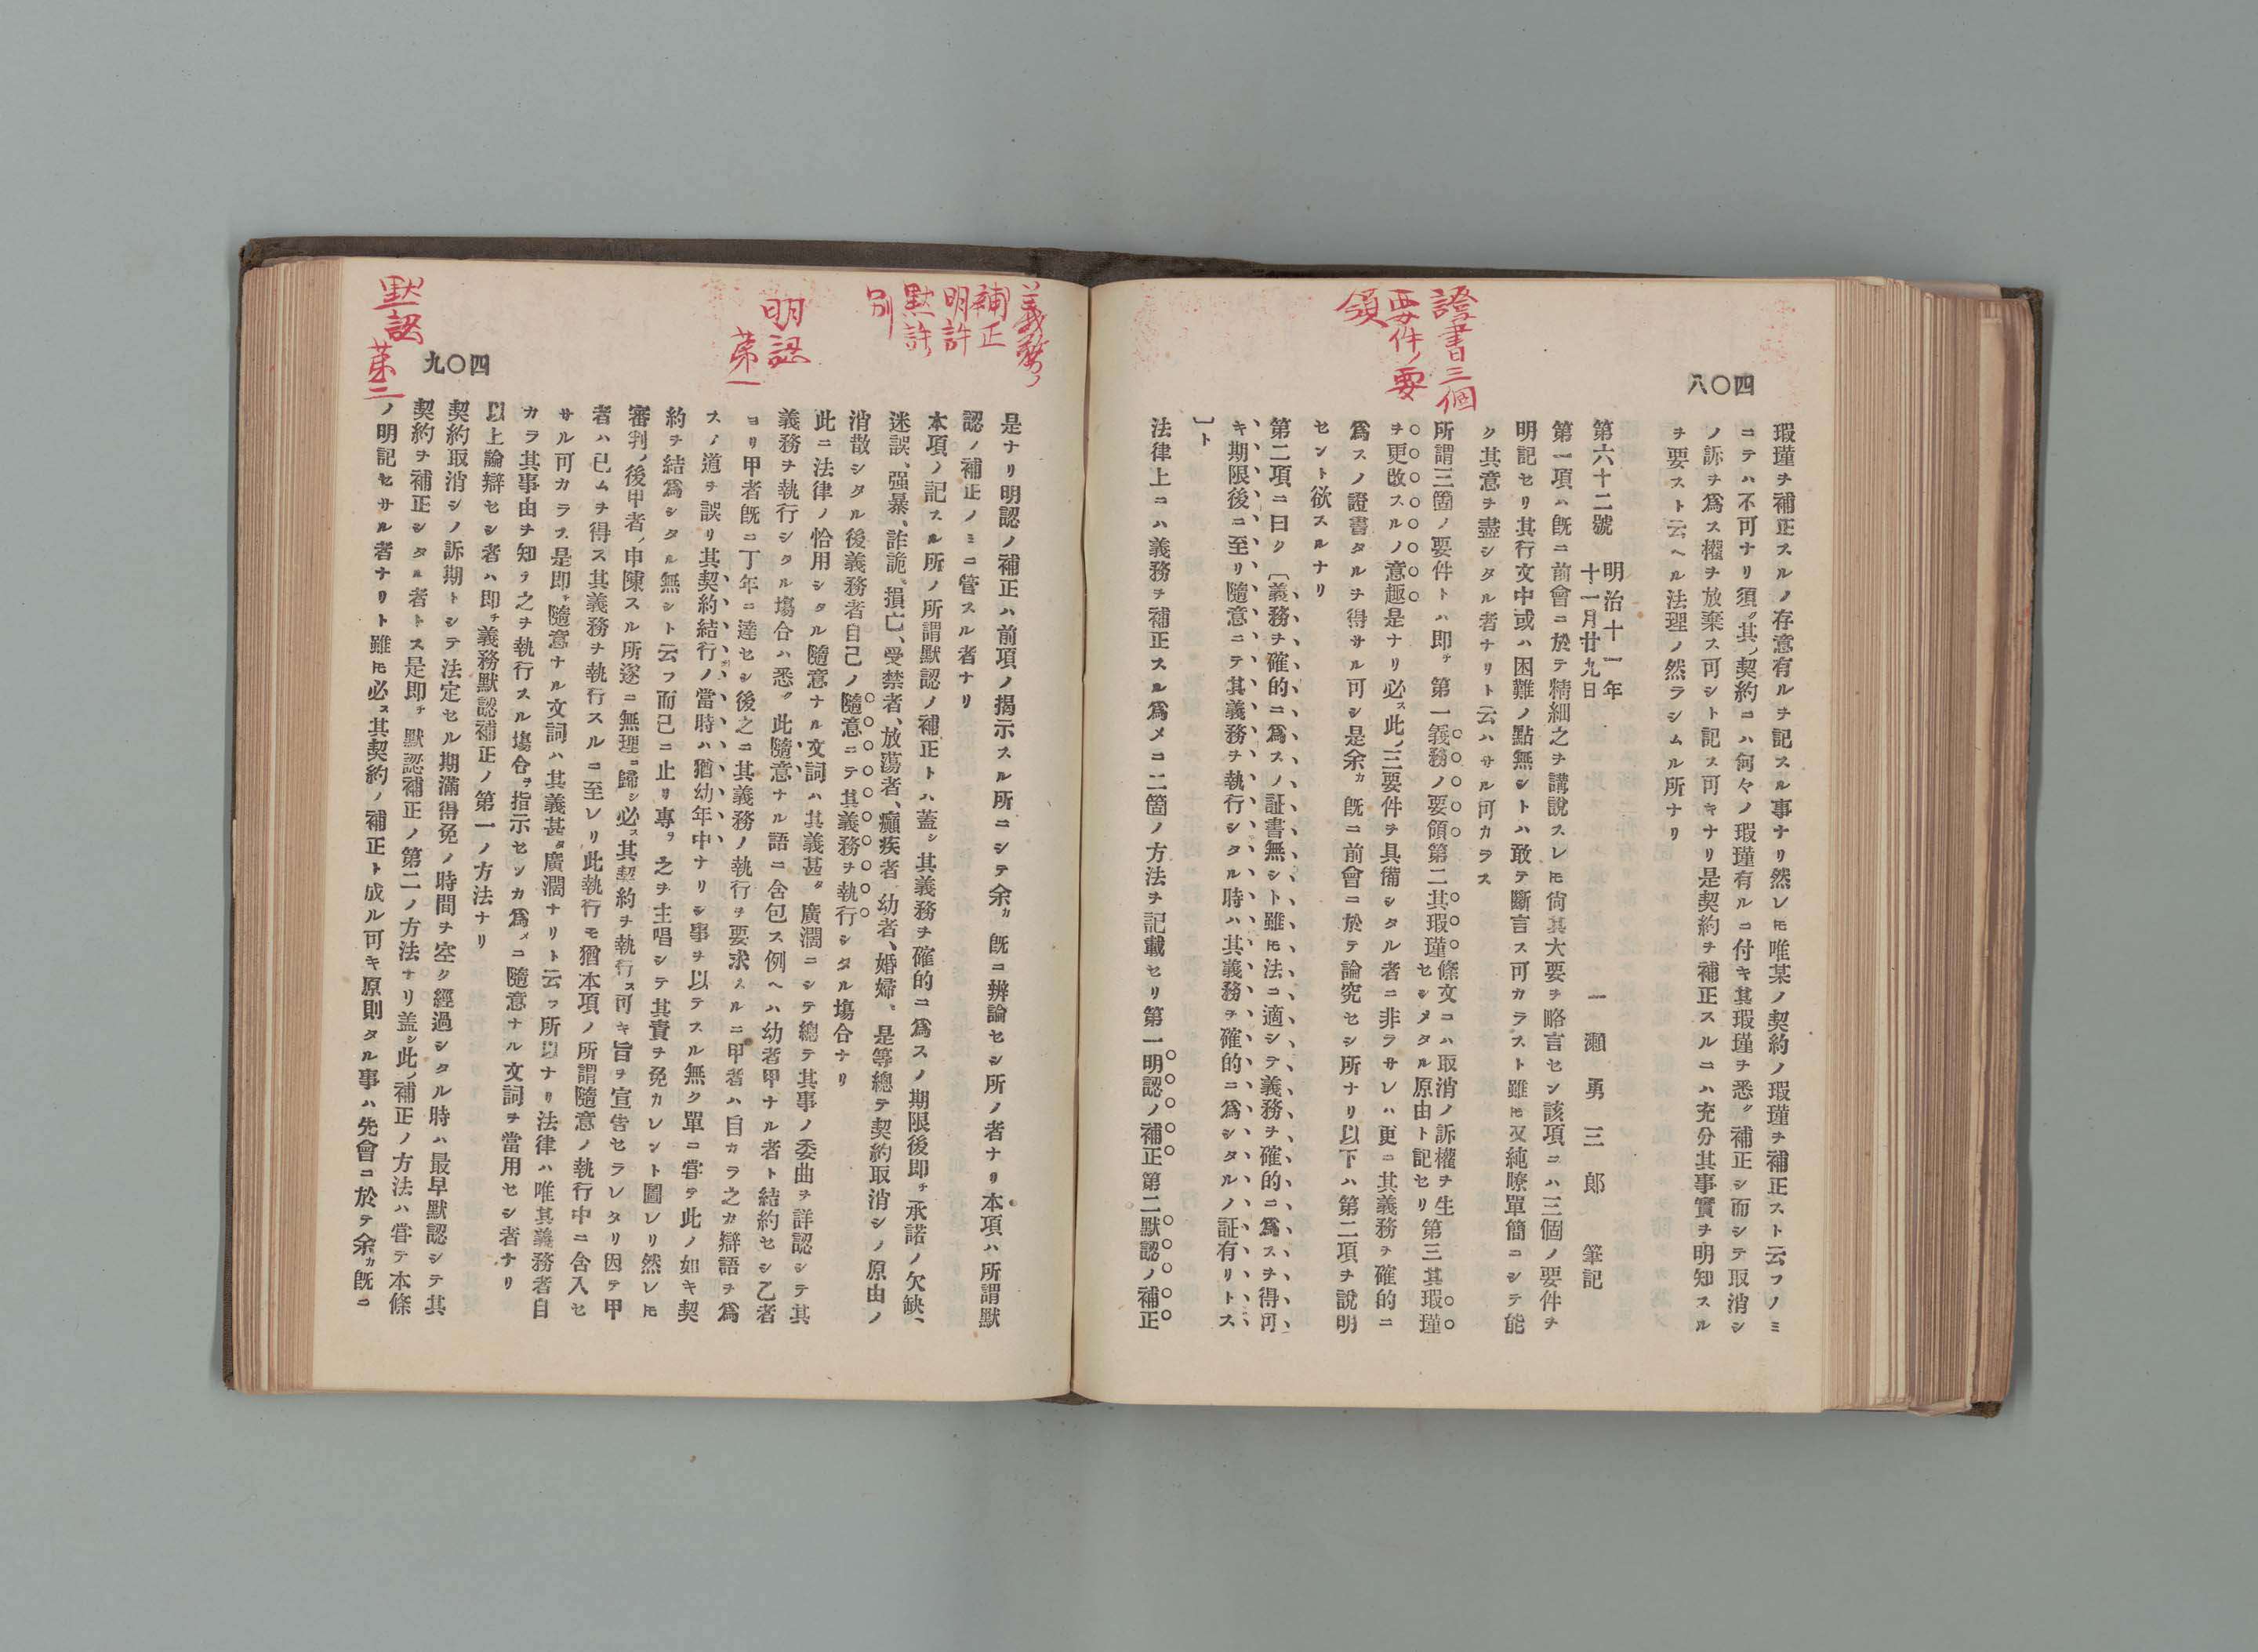 四〇八
瑕瑾ヲ補正スルノ存意有ルヲ記スル事ナリ然レ𪜈唯某ノ契約ノ瑕瑾ヲ補正スト云フノミ
ニテハ不可ナリ須ク其契約ニハ何々ノ瑕瑾有ルニ付キ其瑕瑾ヲ悉ク補正シ而シテ取消シ
ノ訴ヲ爲ス權ヲ放棄ス可シト記ス可キナリ是契約ヲ補正スルニハ充分其事實ヲ明知スル
ヲ要スト云ヘル法理ノ然ラシムル所ナリ
第六十二號 明治十一年十一月廿九日 一瀬勇三郎 筆記
第一項ハ既ニ前會ニ於テ精細之ヲ講說スレ𪜈尙其大要ヲ略言セン該項ニハ三個ノ要件ヲ
明記セリ其行文中或ハ困難ノ點無シトハ敢テ斷言ス可カラスト雖𪜈又純暸單簡ニシテ能
ク其意ヲ盡シタル者ナリト云ハサル可カラス
證書三個
要件ノ要
領
所謂三箇ノ要件トハ即チ第一義務ノ要領第二其瑕瑾條文ニハ取消ノ訴權ヲ生セシメタル原由ト記セリ第三其瑕瑾
ヲ更改スルノ意趣是ナリ必ス此ノ三要件ヲ具備シタル者ニ非ラサレハ更ニ其義務ヲ確的ニ
爲スノ證書タルヲ得サル可シ是余カ既ニ前會ニ於テ論究セシ所ナリ以下ハ第二項ヲ說明
セント欲スルナリ
第二項ニ曰ク〔義務ヲ確的ニ爲スノ証書無シト雖𪜈法ニ適シテ義務ヲ確的ニ爲スヲ得可
キ期限後ニ至リ隨意ニテ其義務ヲ執行シタル時ハ其義務ヲ確的ニ爲シタルノ証有リトス
〕ト
法律上ニハ義務ヲ補正スル爲メニ二箇ノ方法ヲ記載セリ第一明認ノ補正第二默認ノ補正
四〇九
義務ノ
補正
明許
默許ノ
別
是ナリ明認ノ補正ハ前項ノ揭示スル所ニシテ余カ既ニ辨論セシ所ノ者ナリ本項ハ所謂默
認ノ補正ノミニ管スル者ナリ
本項ノ記スル所ノ所謂默認ノ補正トハ蓋シ其義務ヲ確的ニ爲スノ期限後即チ承諾ノ欠缺、
迷誤、强暴、詐詭、損亡、受禁者、放蕩者、癲疾者、幼者、婚婦、是等總テ契約取消シノ原由ノ
消散シタル後義務者自己ノ隨意ニテ其義務ヲ執行シタル塲合ナリ
明認
第一
此ニ法律ノ恰用シタル隨意ナル文詞ハ其義甚タ廣濶ニシテ總テ其事ノ委曲ヲ詳認シテ其
義務ヲ執行シタル塲合ハ悉ク此隨意ナル語ニ含包ス例ヘハ幼者甲ナル者ト結約セシ乙者
ヨリ甲者既ニ丁年ニ達セシ後之ニ其義務ノ執行ヲ要求スルニ甲者ハ自カラ之カ辯語ヲ爲
スノ道ヲ誤リ其契約結行ノ當時ハ猶幼年中ナリシ事ヲ以テスル無ク單ニ甞テ此ノ如キ契
約ヲ結爲シタル無シト云フ而已ニ止リ專ヲ之ヲ主唱シテ其責ヲ免カレント圖レリ然レ𪜈
審判ノ後甲者ノ申陳スル所遂ニ無理ニ歸シ必ス其契約ヲ執行ス可キ旨ヲ宣告セラレタリ因テ甲
者ハ已ムヲ得ス其義務ヲ執行スルニ至レリ此執行モ猶本項ノ所謂隨意ノ執行中ニ含入セ
サル可カラス是即チ隨意ナル文詞ハ其義甚タ廣濶ナリト云フ所以ナリ法律ハ唯其義務者自
カラ其事由ヲ知テ之ヲ執行スル塲合ヲ指示センカ爲メニ隨意ナル文詞ヲ當用セシ者ナリ
以上論辯セシ者ハ即チ義務默認補正ノ第一ノ方法ナリ
默認
第二
契約取消シノ訴期トシテ法定セル期滿得免ノ時間ヲ空ク經過シタル時ハ最早默認シテ其
契約ヲ補正シタル者トス是即チ默認補正ノ第二ノ方法ナリ盖シ此ノ補正ノ方法ハ甞テ本條
ノ明記セサル者ナリト雖𪜈必ス其契約ノ補正ト成ル可キ原則タル事ハ先會ニ於テ余カ既ニ